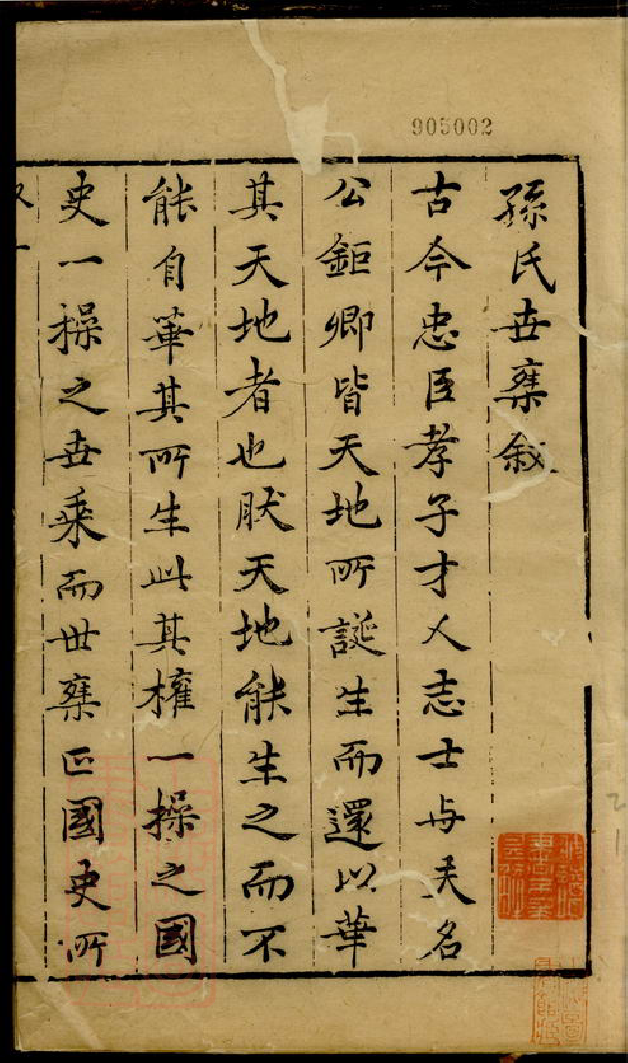 905002
孫氏世乘叙
古今忠臣孝子才人志士与夫名
公鉅卿皆天地所誕生而還以華
其天地者也肰天地能生之而不
能自華其所生此其權一操之國
史一操之世乘而世乘匹國史所